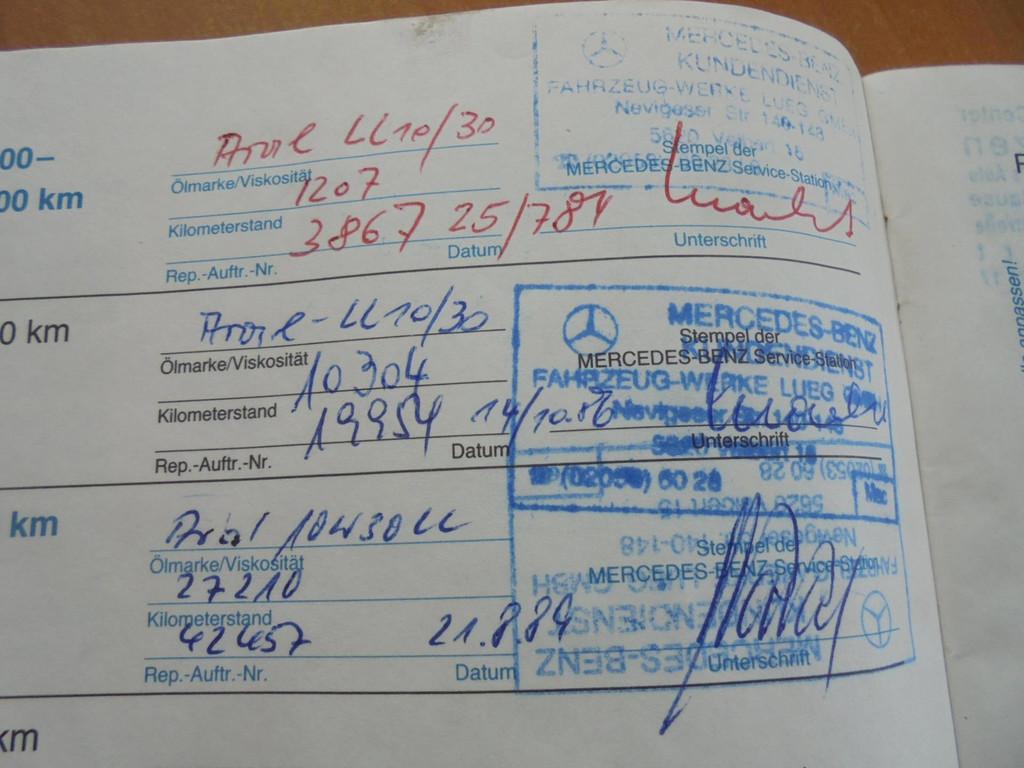 MERCEDES-BENZ
KUNDENDIENST
FAHRZEUG-WERKE LUEG GMBH
Nevigeser Str 140-148
Aral LL 10/30
00–
Ölmarke/Viskosität
Stempel der
MERCEDES-BENZ Service-Station
00 km
1207
Kilometerstand
3867 25/7 81
Rep.-Auftr.-Nr. Datum Unterschrift
0 km
Aral-LL 10/30
MERCEDES-BENZ
KUNDENDIENST
FAHRZEUG-WERKE LUEG GMBH
Stempel der
MERCEDES-BENZ Service-Station
Ölmarke/Viskosität
10304
Kilometerstand
19954 14/10.86
Rep.-Auftr.-Nr. Datum Unterschrift
(02053) 60 28
km
Aral 10W30 LL
Ölmarke/Viskosität
Stempel der
MERCEDES-BENZ Service-Station
27210
Kilometerstand
42457 21.8.89
Rep.-Auftr.-Nr. Datum Unterschrift
(02053) 60 28
140-148
FAHRZEUG-WERKE LUEG GMBH
KUNDENDIENST
MERCEDES-BENZ
km
anpassen!